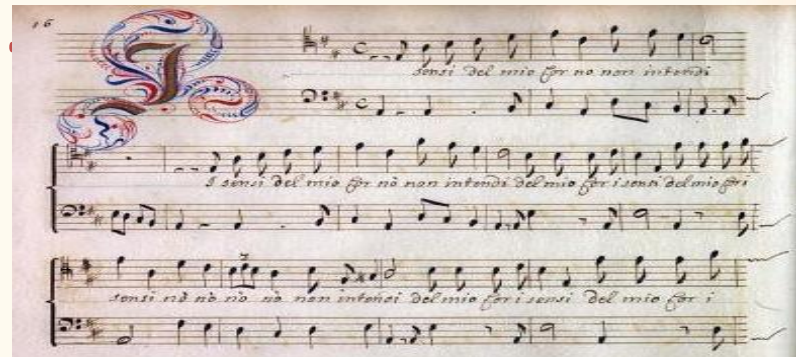 16
I
sensi del mio Cor no non intendi
I sensi del mio Cor nò non intendi del mio Cor i sensi del mio Cor i
sensi nò nò nò no non intendi del mio Cor i sensi del mio Cor i